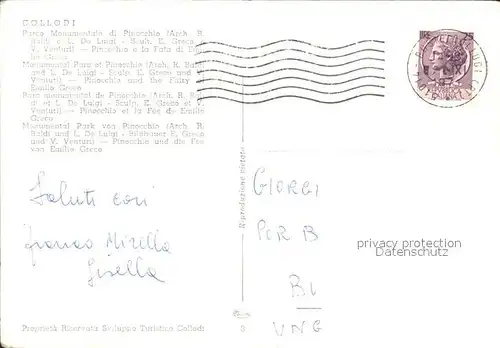 COLLODI
Parco Monumentale di Pinocchio (Arch. R.
Baldi e L. De Luigi - Scul. E. Greco e
V. Venturi) — Pinocchio e la Fata di Emi-
lio Greco
Monumental Parc of Pinocchio (Arch. R. Baldi
and L. De Luigi - Sculp. E. Greco and V.
Venturi) — Pinocchio and the Fairy of
Emilio Greco
Parc monumental de Pinocchio (Arch. R. Bal-
di et L. De Luigi - Sculp. E. Greco et V.
Venturi) — Pinocchio et la Fée de Emilio
Greco
Monumental Park von Pinocchio (Arch. R.
Baldi und L. De Luigi - Bildhauer E. Greco
und V. Venturi) — Pinocchio und die Fée
von Emilio Greco
25
Saluti cari
franco Mirella
Gisella
Riproduzione vietata
GIORGI
PER B
BI
UNG
privacy protection
Datenschutz
Proprietà Riservata Sviluppo Turistico Collodi